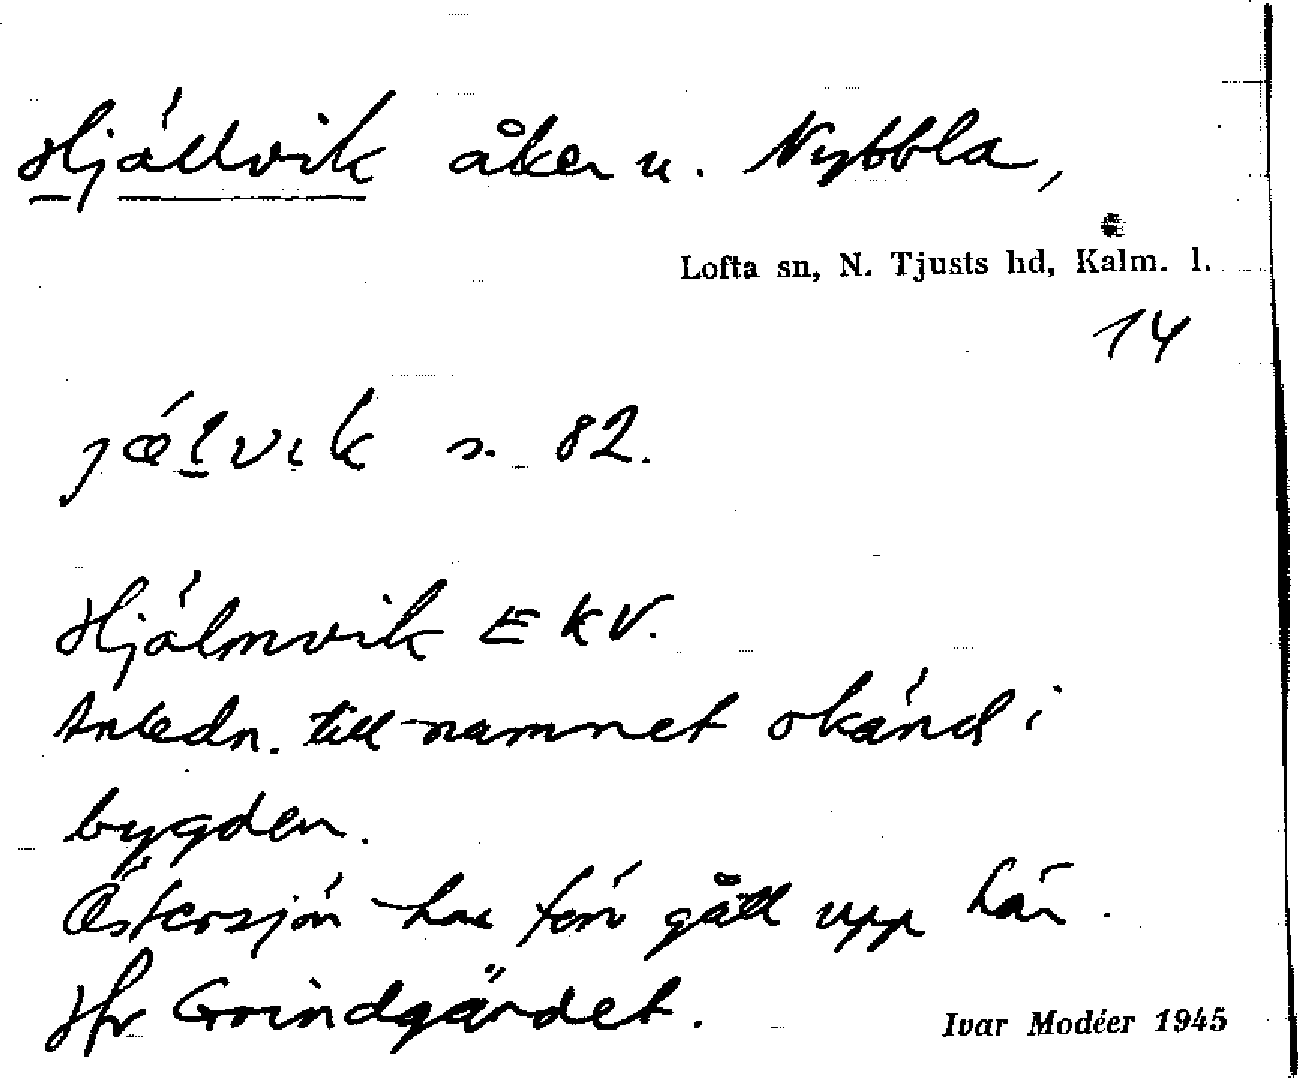 Hjällvik åker u. Nybbla,
Lofta sn, N. Tjusts hd, Kalm. l.
14
jǽlvik s. 82.
Hjälmvik EKV.
Anledn. till namnet okänd i
bygden.
Östersjön har förr gått upp här.
Hfr Grindgärdet.
Ivar Modéer 1945